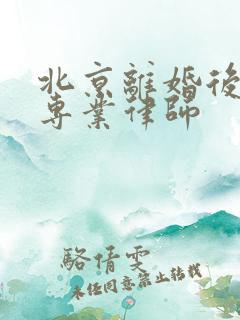 北京離婚後
専業律师
駱倩雯
未经同意禁止转载